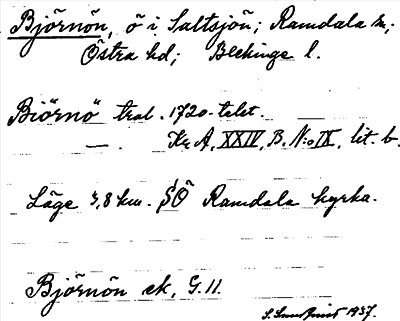 Björnön, ö i Saltsjön; Ramdala sn;
Östra hd; Blekinge l.
Biörnö trol. 1720-talet.
— . Kr A, XXIV, B. N:o IX, lit. b.
Läge 3,8 km. SO Ramdala kyrka.
Björnön ek, G. 11.
1937.